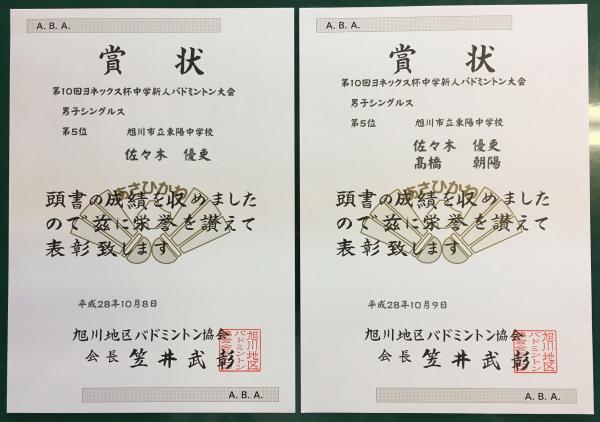 A. B. A.
賞 状
第10回ヨネックス杯中学新人バドミントン大会
男子シングルス
第5位 旭川市立東陽中学校
佐々木 優吏
あさひかわ
頭書の成績を収めました
ので茲に栄誉を讃えて
表彰致します
平成28年10月8日
旭川地区バドミントン協会
会長 笠井武彰
旭川地区
バドミントン
A. B. A.
A. B. A.
賞 状
第10回ヨネックス杯中学新人バドミントン大会
男子シングルス
第5位 旭川市立東陽中学校
佐々木 優吏
髙橋 朝陽
あさひかわ
頭書の成績を収めました
ので茲に栄誉を讃えて
表彰致します
平成28年10月9日
旭川地区バドミントン協会
会長 笠井武彰
旭川地区
バドミントン
A. B. A.